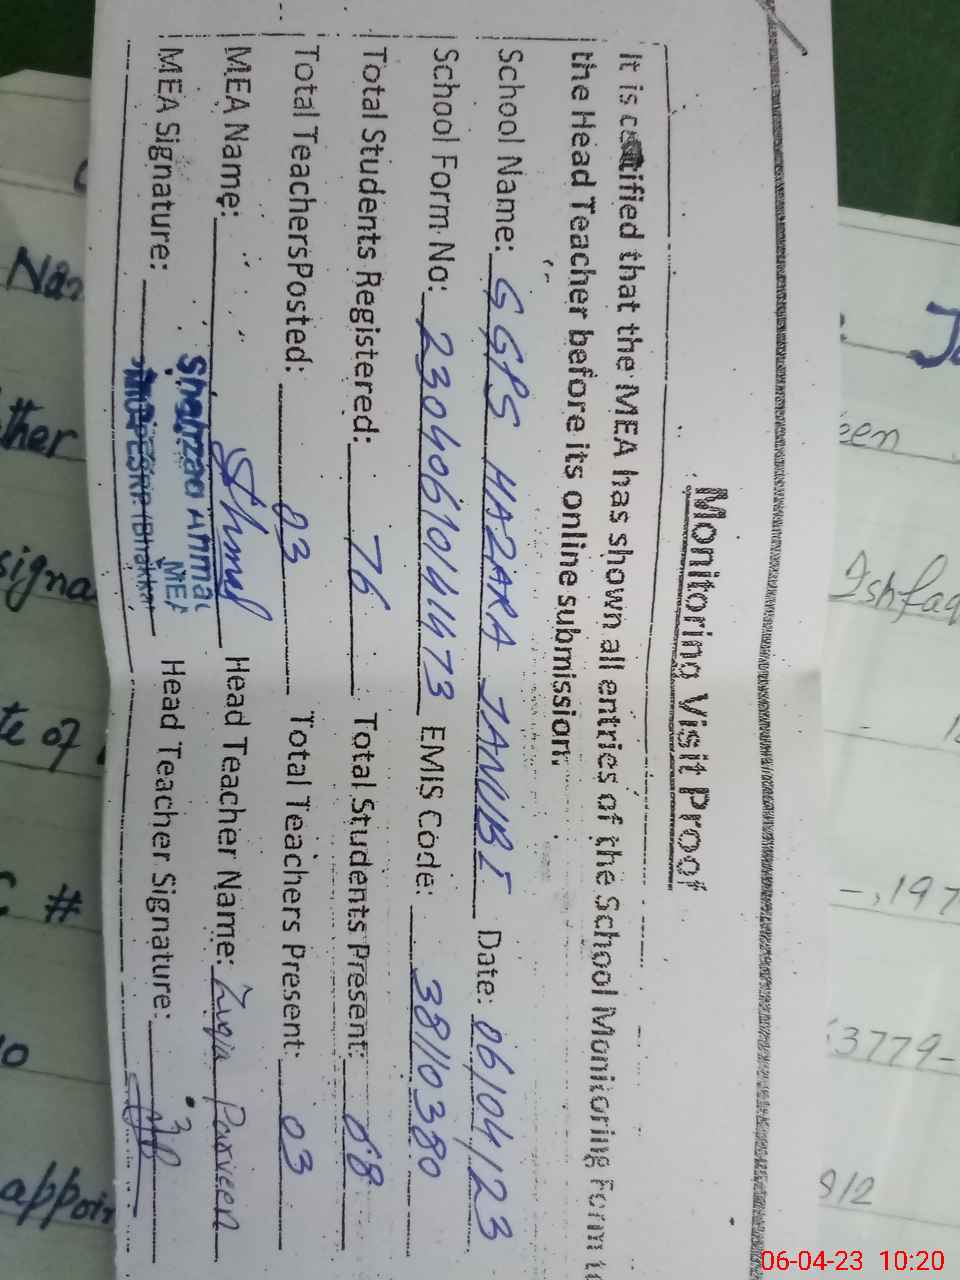 Monitoring Visit Proof
It is certified that the MEA has shown all entries of the School Monitoring Form to
the Head Teacher before its online submission.
School Name: GGPS HAZARA JANUBI Date: 06/04/23
School Form No: 2304061014473 EMIS Code: 38110380
Total Students Registered: 76 Total Students Present: 68
Total TeachersPosted: 03 Total Teachers Present: 03
MEA Name: Head Teacher Name: Parveen
Shahzad Ahmad
MEA
MEA Signature: Head Teacher Signature:
ther
te of
#
appoin
een
Ishfaq
-,197
3779-
912
06-04-23 10:20